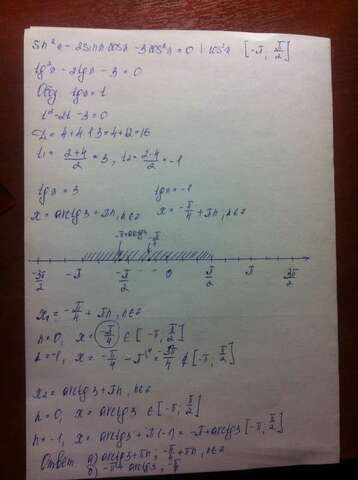 sin²x - 2sinx cosx - 3cos²x = 0 | : cos²x [-π; π/2]
tg²x - 2tgx - 3 = 0
Обзн tgx = t
t² - 2t - 3 = 0
D = 4 + 4·3 = 4 + 12 = 16
t₁ = (2+4)/2 = 3, t₂ = (2-4)/2 = -1
tgx = 3 tgx = -1
x = arctg3 + πn, n∈z x = -π/4 + πn, n∈z
-π+arctg3 -π/4
-3π/2 -π -π/2 0 π/2 π 3π/2
x₁ = -π/4 + πn, n∈z
n=0, x = -π/4 ∈ [-π; π/2]
n=-1, x = -π/4 - π = -5π/4 ∉ [-π; π/2]
x₂ = arctg3 + πn, n∈z
n=0, x = arctg3 ∈ [-π; π/2]
n=-1, x = arctg3 + π(-1) = -π + arctg3
Ответ а) arctg3 + πn; -π/4 + πn, n∈z
б) -π + arctg3; -π/4